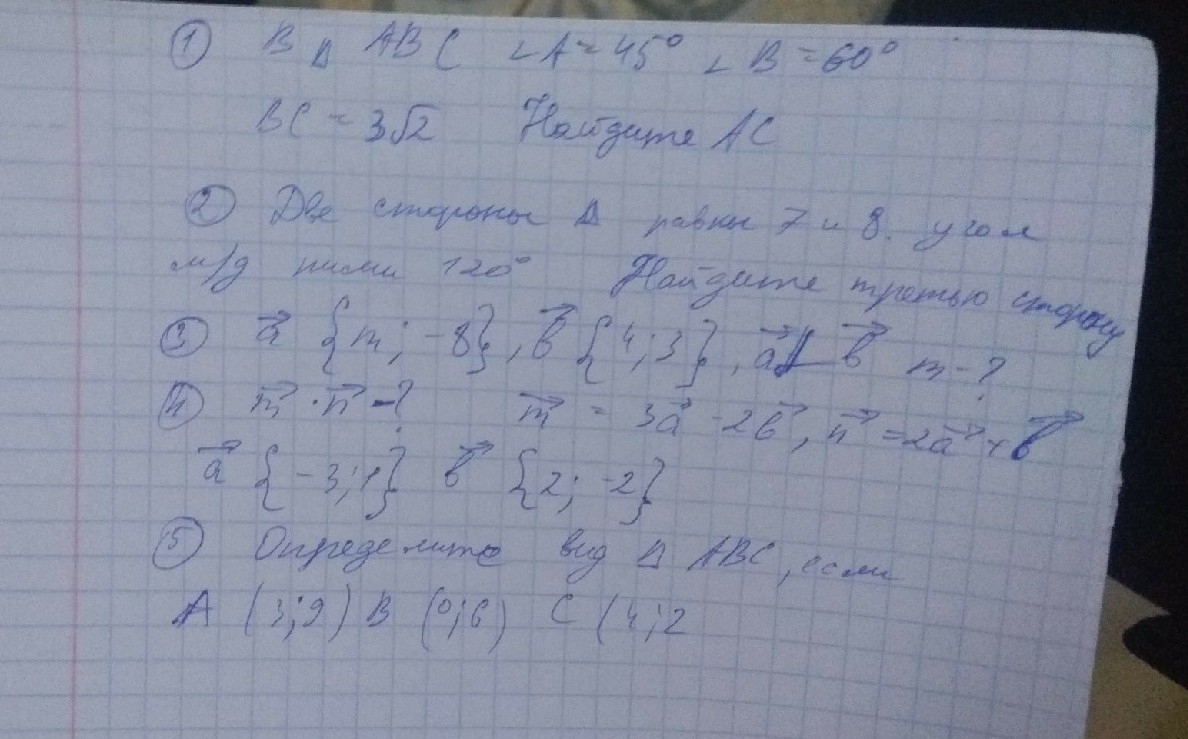 ① В △ ABC ∠A=45° ∠B=60°
BC = 3√2 Найдите AC
② Две стороны △ равны 7 и 8. угол
м/д ними 120° Найдите третью сторону
③ a⃗ {m; -8}, b⃗ {4; 3}, a⃗ ⊥ b⃗ m-?
④ m⃗ · n⃗ -? m⃗ = 3a⃗ -2b⃗, n⃗ =2a⃗ + b⃗
a⃗ {-3; 1} b⃗ {2; -2}
⑤ Определите вид △ ABC, если
A (3; 9) B (0; 6) C (4; 2